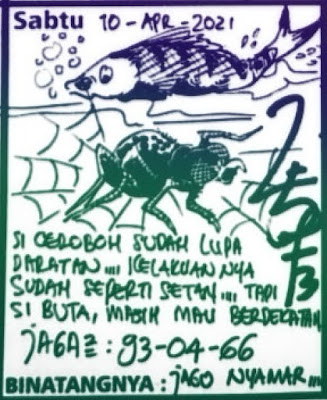 Sabtu 10-APR-2021
SI CEROBOH SUDAH LUPA
DARATAN.... KELAKUANNYA
SUDAH SEPERTI SETAN.... TAPI
SI BUTA, MASIH MAU BERDEKATAN
JAGA2 : 93-04-66
BINATANGNYA : JAGO NYAMAR...